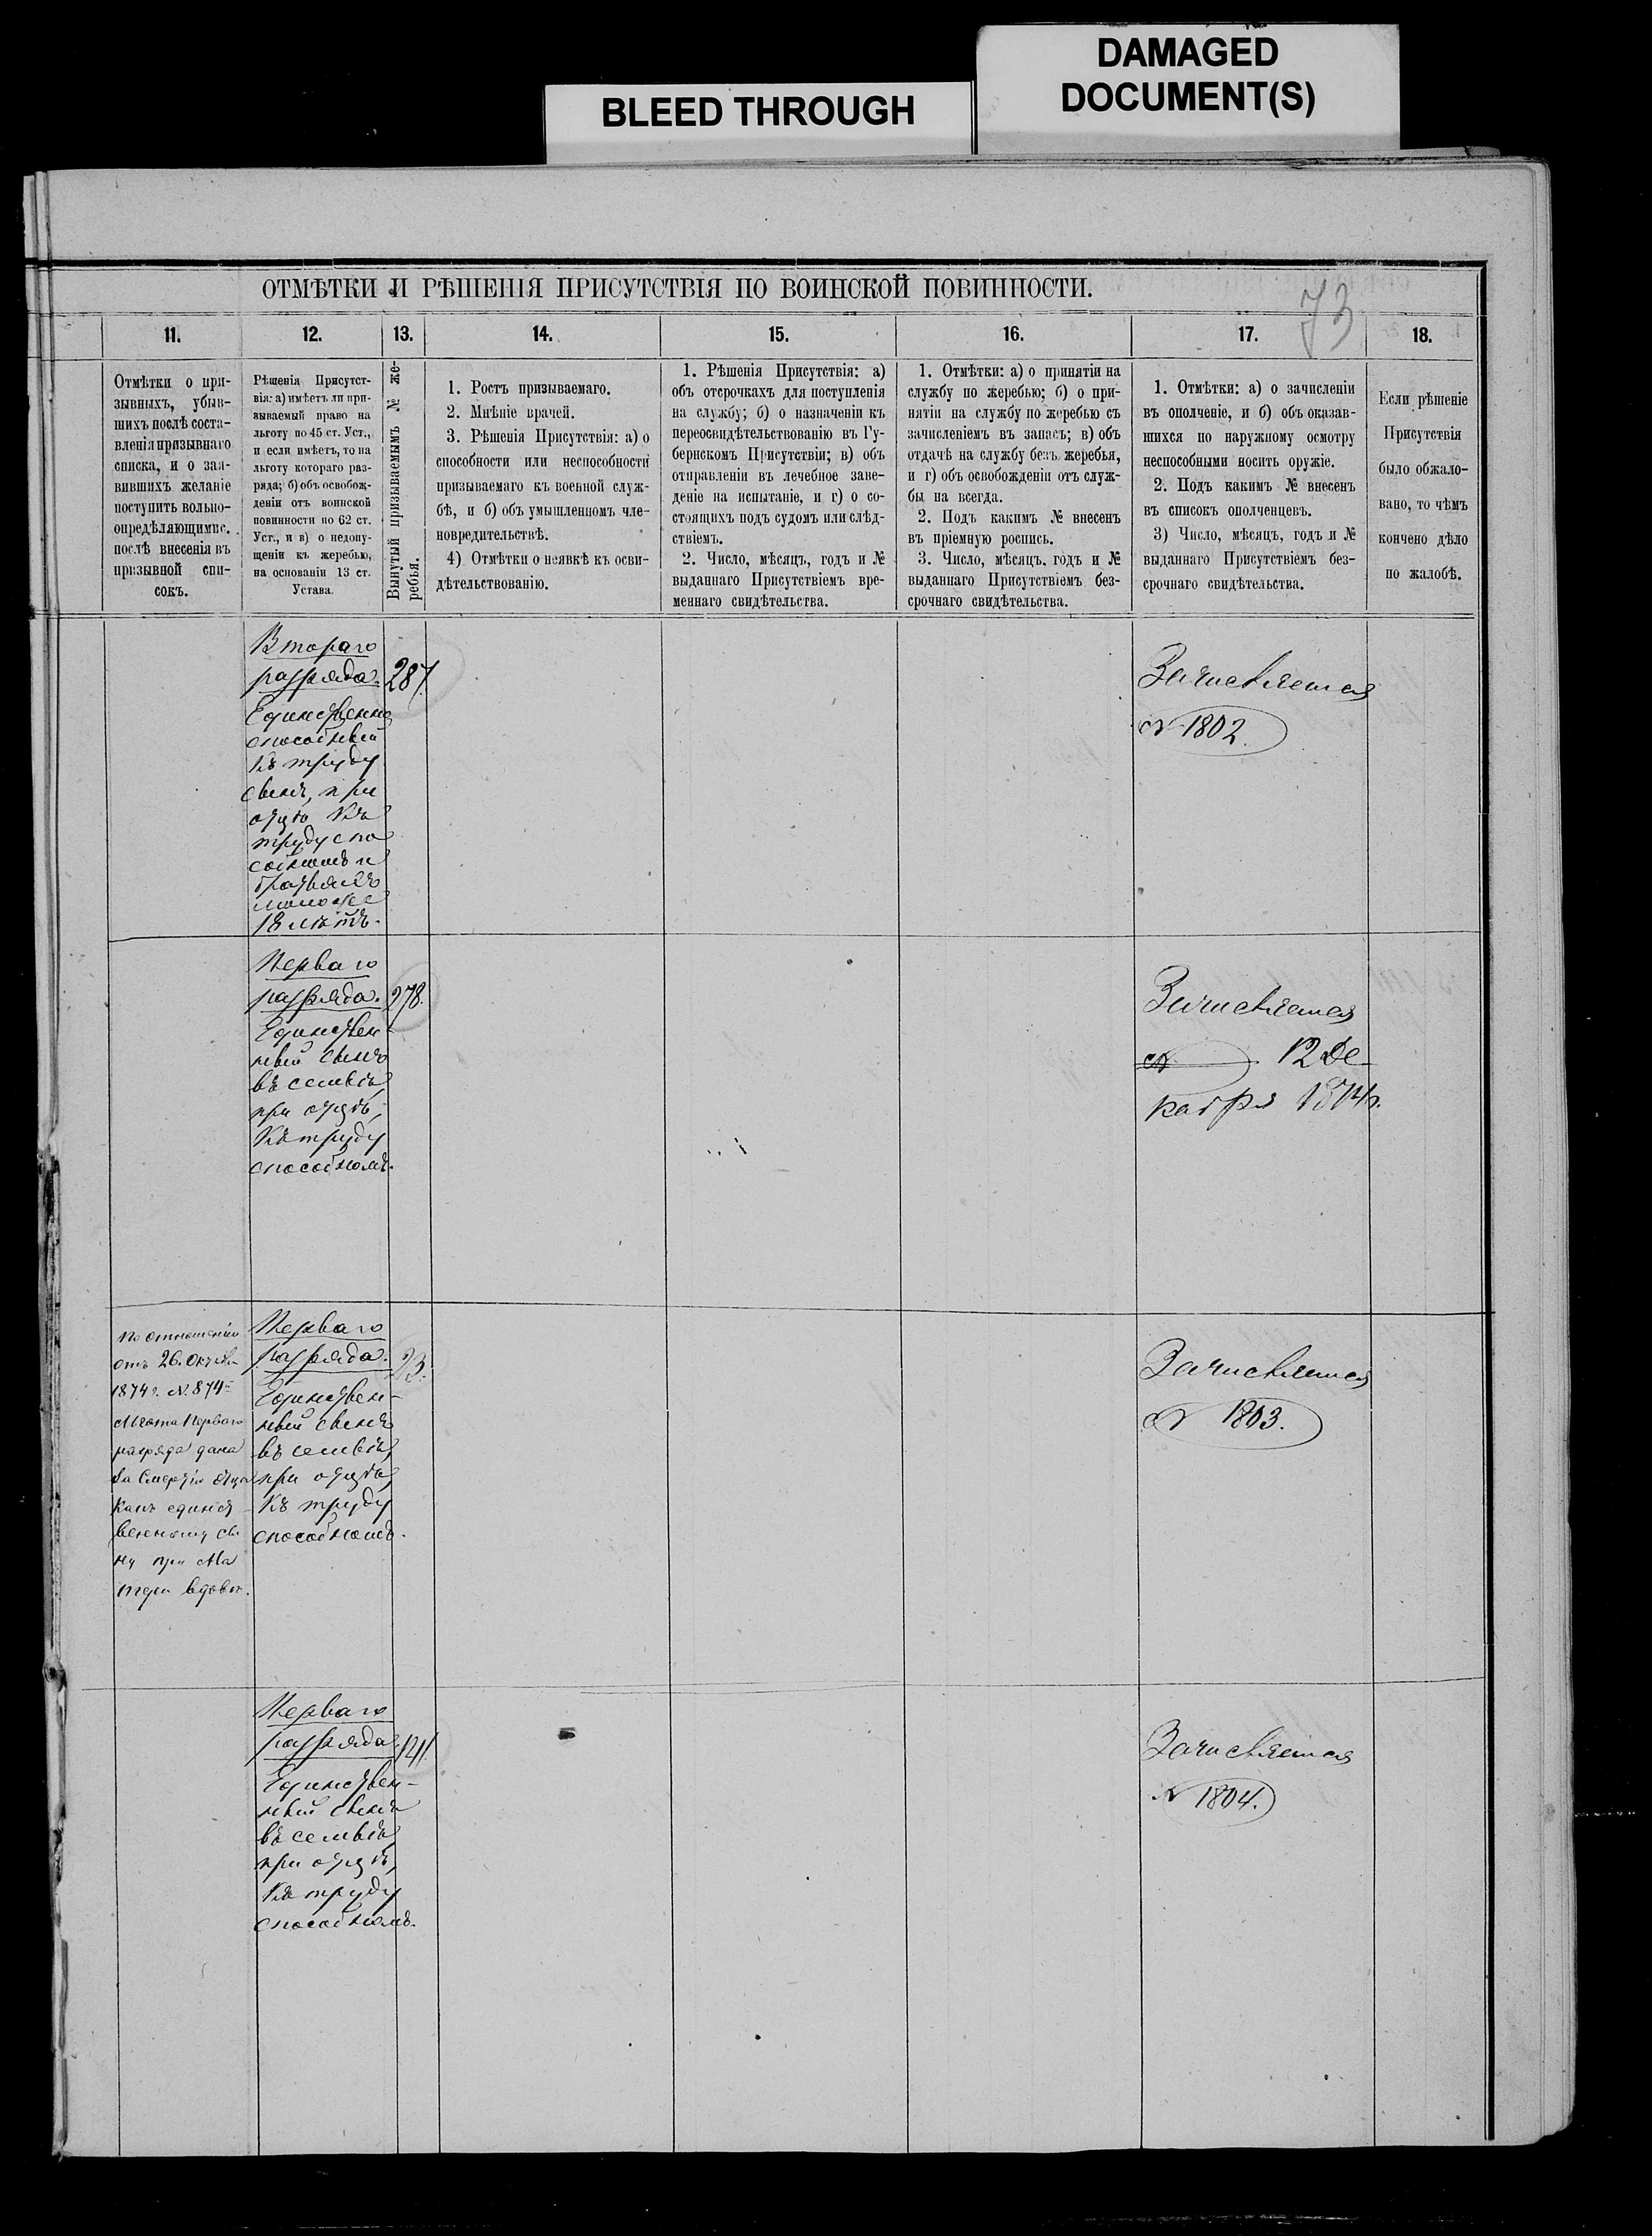 DAMAGED
DOCUMENT(S)
BLEED THROUGH
ОТМѢТКИ И РѢШЕНІЯ ПРИСУТСТВІЯ ПО ВОИНСКОЙ ПОВИННОСТИ.
73
11.
12.
13.
14.
15.
16.
17.
18.
Отмѣтки о при-
зывныхъ, убыв-
шихъ послѣ соста-
вленія призывнаго
списка, и о зая-
вившихъ желаніе
поступить вольно-
опредѣляющимис.
послѣ внесенія въ
призывной спи-
сокъ.
Рѣшенія Присутст-
вія: а) имѣетъ ли при-
зываемый право на
льготу по 45 ст. Уст.,
и если имѣетъ, то на
льготу котораго раз-
ряда; б) объ освобож-
деніи отъ воинской
повинности по 62 ст.
Уст., и в) о недопу-
щеніи къ жеребью,
на основаніи 13 ст.
Устава.
Вынутый призываемымъ № же-
ребья.
1. Ростъ призываемаго.
2. Мнѣніе врачей.
3. Рѣшенія Присутствія: а) о
способности или неспособности
призываемаго къ военной служ-
бѣ, и б) объ умышленномъ чле-
новредительствѣ.
4) Отмѣтки о неявкѣ къ осви-
дѣтельствованію.
1. Рѣшенія Присутствія: а)
объ отсрочкахъ для поступленія
на службу; б) о назначеніи къ
переосвидѣтельствованію въ Гу-
бернскомъ Присутствіи; в) объ
отправленіи въ лечебное заве-
деніе на испытаніе, и г) о со-
стоящихъ подъ судомъ или слѣд-
ствіемъ.
2. Число, мѣсяцъ, годъ и №
выданнаго Присутствіемъ вре-
меннаго свидѣтельства.
1. Отмѣтки: а) о принятіи на
службу по жеребью; б) о при-
нятіи на службу по жеребью съ
зачисленіемъ въ запасъ; в) объ
отдачѣ на службу безъ жеребья,
и г) объ освобожденіи отъ служ-
бы на всегда.
2. Подъ какимъ № внесенъ
въ пріемную роспись.
3. Число, мѣсяцъ. годъ и №
выданнаго Присутствіемъ без-
срочнаго свидѣтельства.
1. Отмѣтки: а) о зачисленіи
въ ополченіе, и б) объ оказав-
шихся по наружному осмотру
неспособными носить оружіе.
2. Подъ какимъ № внесенъ
въ списокъ ополченцевъ.
3) Число, мѣсяцъ, годъ и №
выданнаго Присутствіемъ без-
срочнаго свидѣтельства.
Если рѣшеніе
Присутствія
было обжало-
вано, то чѣмъ
кончено дѣло
по жалобѣ.
Втораго
разряда.
Единственно
способный
къ труду
сынъ, при
отцѣ къ
труду спо
собномъ и
братьяхъ
моложе
18 лѣтъ.
287.
Зачисляется
№ 1802.
Перваго
разряда.
Единствен-
ный сынъ
въ семьѣ,
при отцѣ,
къ труду
способномъ.
278.
Зачисляется
№ 12 Де-
кабря 1874 г.
По отношенію
отъ 26. Октября
1874 г. № 874
Льгота Перваго
разряда дана
за смертію отца
какъ единст-
венному сы
ну при Ма
тери вдовѣ.
Перваго
разряда.
Единствен-
ный сынъ
въ семьѣ,
при отцѣ,
къ труду
способномъ.
23.
Зачисляется
№ 1803.
Перваго
разряда
Единствен-
ный сынъ
въ семьѣ,
при отцѣ,
къ труду
способномъ.
Зачисляется
№ 1804.